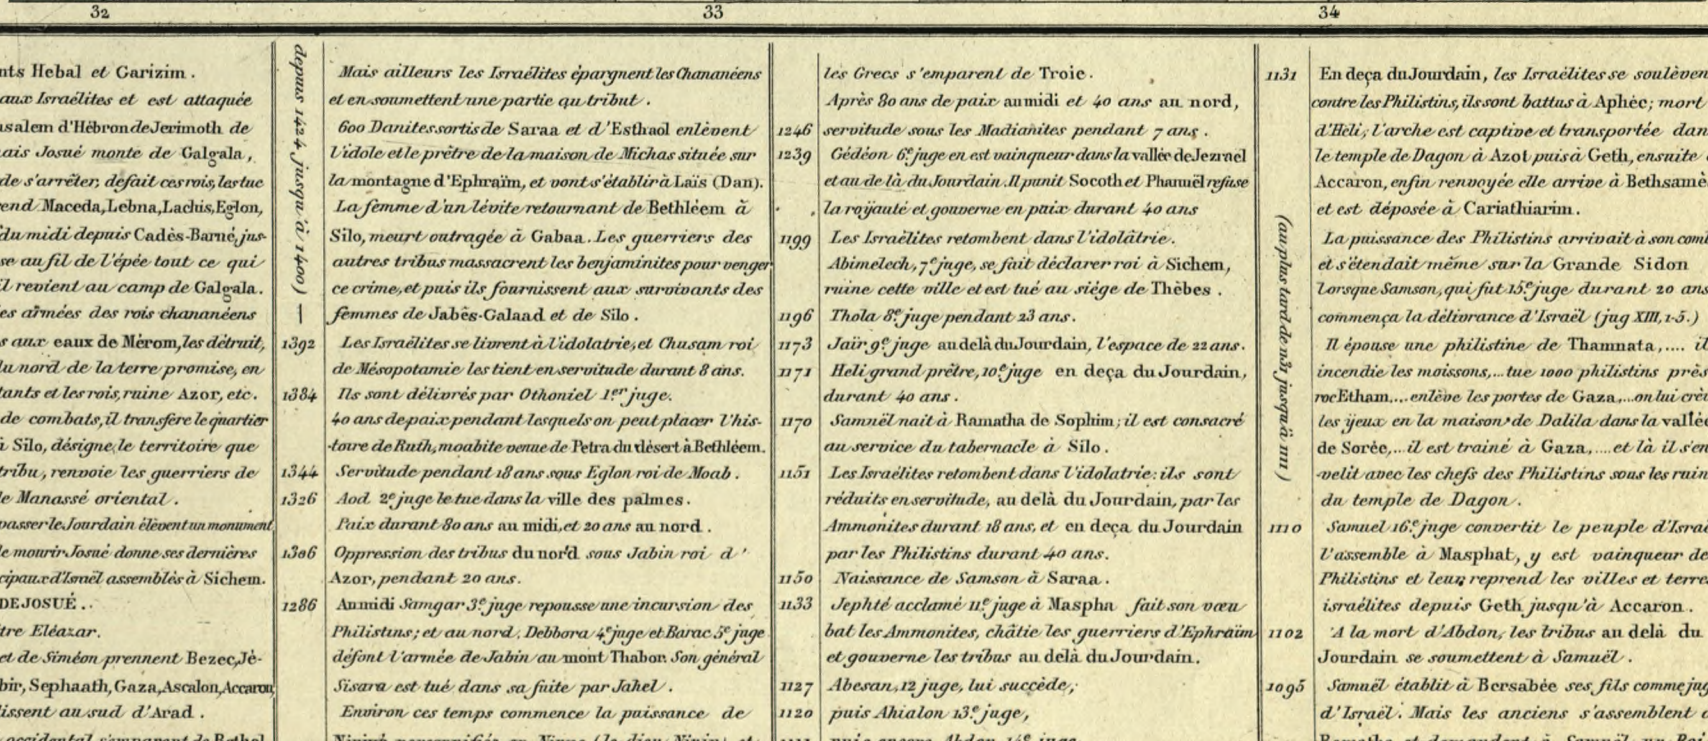 32
33
34
nts Hebal et Garizim.
aux Israélites et est attaquée
usalem d'Hébron de Jerimoth de
ais Josué monte de Galgala,
de s'arrêter, defait ces rois, les tue
end Maceda, Lebna, Lachis, Eglon,
du midi depuis Cadès-Barné, jus-
se au fil de l'épée tout ce qui
il revient au camp de Galgala.
es armées des rois chananéens
s aux eaux de Mérom, les détruit,
du nord de la terre promise, en
tants et les rois, ruine Azor, etc.
de combats, il transfère le quartier
à Silo, désigne le territoire que
tribu, renvoie les guerriers de
le Manassé oriental.
passer le Jourdain élèvent un monument
le mourir Josué donne ses dernières
cipaux d'Israël assemblés à Sichem.
DE JOSUÉ.
tre Eléazar.
et de Siméon prennent Bezec, Jé-
bir, Sephaath, Gaza, Ascalon, Accaron
lissent au sud d'Arad.
occidental s'emparent de Béthel
depuis 1424 jusqu'à 1400) —
Mais ailleurs les Israélites épargnent les Chananéens
et en soumettent une partie qu tribut.
600 Danites sortis de Saraa et d'Esthaol enlèvent
l'idole et le prêtre de la maison de Michas située sur
la montagne d'Ephraïm, et vont s'établir à Laïs (Dan).
La femme d'un lévite retournant de Bethléem à
Silo, meurt outragée à Gabaa. Les guerriers des
autres tribus massacrent les benjaminites pour venger
ce crime, et puis ils fournissent aux survivants des
femmes de Jabès-Galaad et de Silo.
1392 Les Israélites se livrent à l'idolatrie, et Chusam roi
de Mésopotamie les tient en servitude durant 8 ans.
1384 Ils sont délivrés par Othoniel 1er juge.
40 ans de paix pendant lesquels on peut placer l'his-
-toire de Ruth, moabite venue de Petra du désert à Bethléem.
1344 Servitude pendant 18 ans sous Eglon roi de Moab.
1326 Aod 2e juge le tue dans la ville des palmes.
Paix durant 80 ans au midi, et 20 ans au nord.
1306 Oppression des tribus du nord sous Jabin roi d'
Azor, pendant 20 ans.
1286 Au midi Samgar 3e juge repousse une incursion des
Philistins; et au nord, Debbora 4e juge et Barac 5e juge
défont l'armée de Jabin au mont Thabor. Son général
Sisara est tué dans sa fuite par Jahel.
Environ ces temps commence la puissance de
les Grecs s'emparent de Troie.
Après 80 ans de paix au midi et 40 ans au nord,
1246 servitude sous les Madianites pendant 7 ans.
1239 Gédéon 6e juge en est vainqueur dans la vallée de Jezrael
et au de là du Jourdain. Il punit Socoth et Phanuël refuse
la royauté et gouverne en paix durant 40 ans
1199 Les Israélites retombent dans l'idolâtrie.
Abimelech, 7e juge, se fait déclarer roi à Sichem,
ruine cette ville et est tué au siége de Thèbes.
1196 Thola 8e juge pendant 23 ans.
1173 Jaïr 9e juge au delà du Jourdain, l'espace de 22 ans.
1171 Heli grand prêtre, 10e juge en deça du Jourdain,
durant 40 ans.
1170 Samuël nait à Ramatha de Sophim; il est consacré
au service du tabernacle à Silo.
1151 Les Israélites retombent dans l'idolatrie: ils sont
réduits en servitude, au delà du Jourdain, par les
Ammonites durant 18 ans, et en deça du Jourdain
par les Philistins durant 40 ans.
1150 Naissance de Samson à Saraa.
1133 Jephté acclamé 11e juge à Maspha fait son vœu
bat les Ammonites, châtie les guerriers d'Ephraïm
et gouverne les tribus au delà du Jourdain.
1127 Abesan, 12 juge, lui succède;
1120 puis Ahialon 13e juge,
puis encore Abdon 14e juge
(au plus tard de 1131 jusqu'à 1111)
1131 En deça du Jourdain, les Israélites se soulèven
contre les Philistins, ils sont battus à Aphéc; mort
d'Héli; l'arche est captive et transportée dan
le temple de Dagon à Azot puis à Geth, ensuite
Accaron, enfin renvoyée elle arrive à Bethsamè
et est déposée à Cariathiarim.
La puissance des Philistins arrivait à son com
et s'étendait même sur la Grande Sidon
lorsque Samson, qui fut 15e juge durant 20 ans
commença la délivrance d'Israël (jug XIII, 1-5.)
Il épouse une philistine de Thamnata,.... il
incendie les moissons,... tue 1000 philistins près
roc Etham,... enlève les portes de Gaza,... on lui crè
les yeux en la maison de Dalila dans la vallée
de Sorée,... il est trainé à Gaza,.... et là il s'en
-velit avec les chefs des Philistins sous les ruin
du temple de Dagon.
1110 Samuel 16e juge convertit le peuple d'Israë
l'assemble à Masphat, y est vainqueur de
Philistins et leur reprend les villes et terre
israélites depuis Geth jusqu'à Accaron.
1102 A la mort d'Abdon, les tribus au delà du
Jourdain se soumettent à Samuël.
1095 Samuël établit à Bersabée ses fils comme jug
d'Israël. Mais les anciens s'assemblent